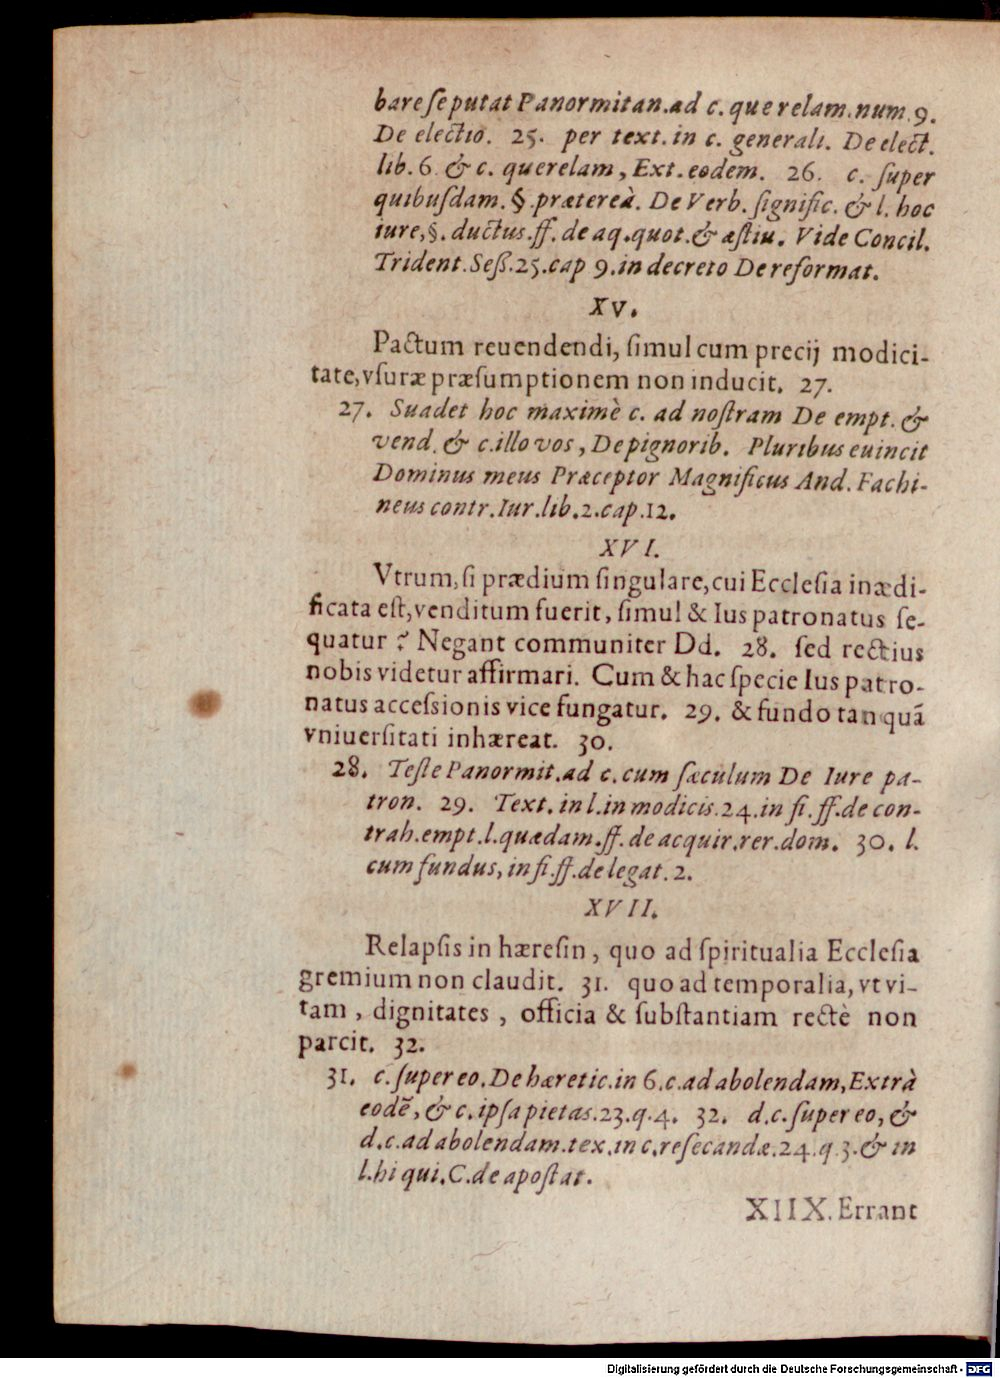 bare ſe putat Panormitan. ad c. querelam. num. 9.
De electio. 25. per text. in c. generali. De elect.
lib. 6. & c. querelam, Ext. eodem. 26. c. ſuper
quibuſdam. §. prætereà. De Verb. ſignific. & l. hoc
iure, §. ductus. ff. de aq. quot. & æſtiu. Vide Concil.
Trident. Seß. 25. cap 9. in decreto De reformat.
XV.
Pactum reuendendi, ſimul cum precij modici-
tate, vſuræ præſumptionem non inducit. 27.
27. Suadet hoc maximè c. ad noſtram De empt. &
vend. & c. illo vos, De pignorib. Pluribus euincit
Dominus meus Præceptor Magnificus And. Fachi-
neus contr. Iur. lib. 2. cap. 12.
XVI.
Vtrum, ſi prædium ſingulare, cui Eccleſia inædi-
ficata eſt, venditum fuerit, ſimul & Ius patronatus ſe-
quatur? Negant communiter Dd. 28. ſed rectius
nobis videtur affirmari. Cum & hac ſpecie Ius patro-
natus acceſsionis vice fungatur. 29. & fundo tanquã
vniuerſitati inhæreat. 30.
28. Teſte Panormit. ad c. cum ſæculum De Iure pa-
tron. 29. Text. in l. in modicis. 24. in fi. ff. de con-
trah. empt. l. quædam. ff. de acquir. rer. dom. 30. l.
cum fundus, in fi. ff. de legat. 2.
XVII.
Relapſis in hæreſin, quo ad ſpiritualia Eccleſia
gremium non claudit. 31. quo ad temporalia, vt vi-
tam, dignitates, officia & ſubſtantiam rectè non
parcit. 32.
31. c. ſuper eo. De hæretic. in 6. c. ad abolendam, Extrà
eodẽ, & c. ipſa pietas. 23. q. 4. 32. d. c. ſuper eo, &
d. c. ad abolendam. tex. in c. reſecandæ. 24. q. 3. & in
l. hi qui. C. de apoſtat.
XIIX. Errant
Digitalisierung gefördert durch die Deutsche Forschungsgemeinschaft - DFG